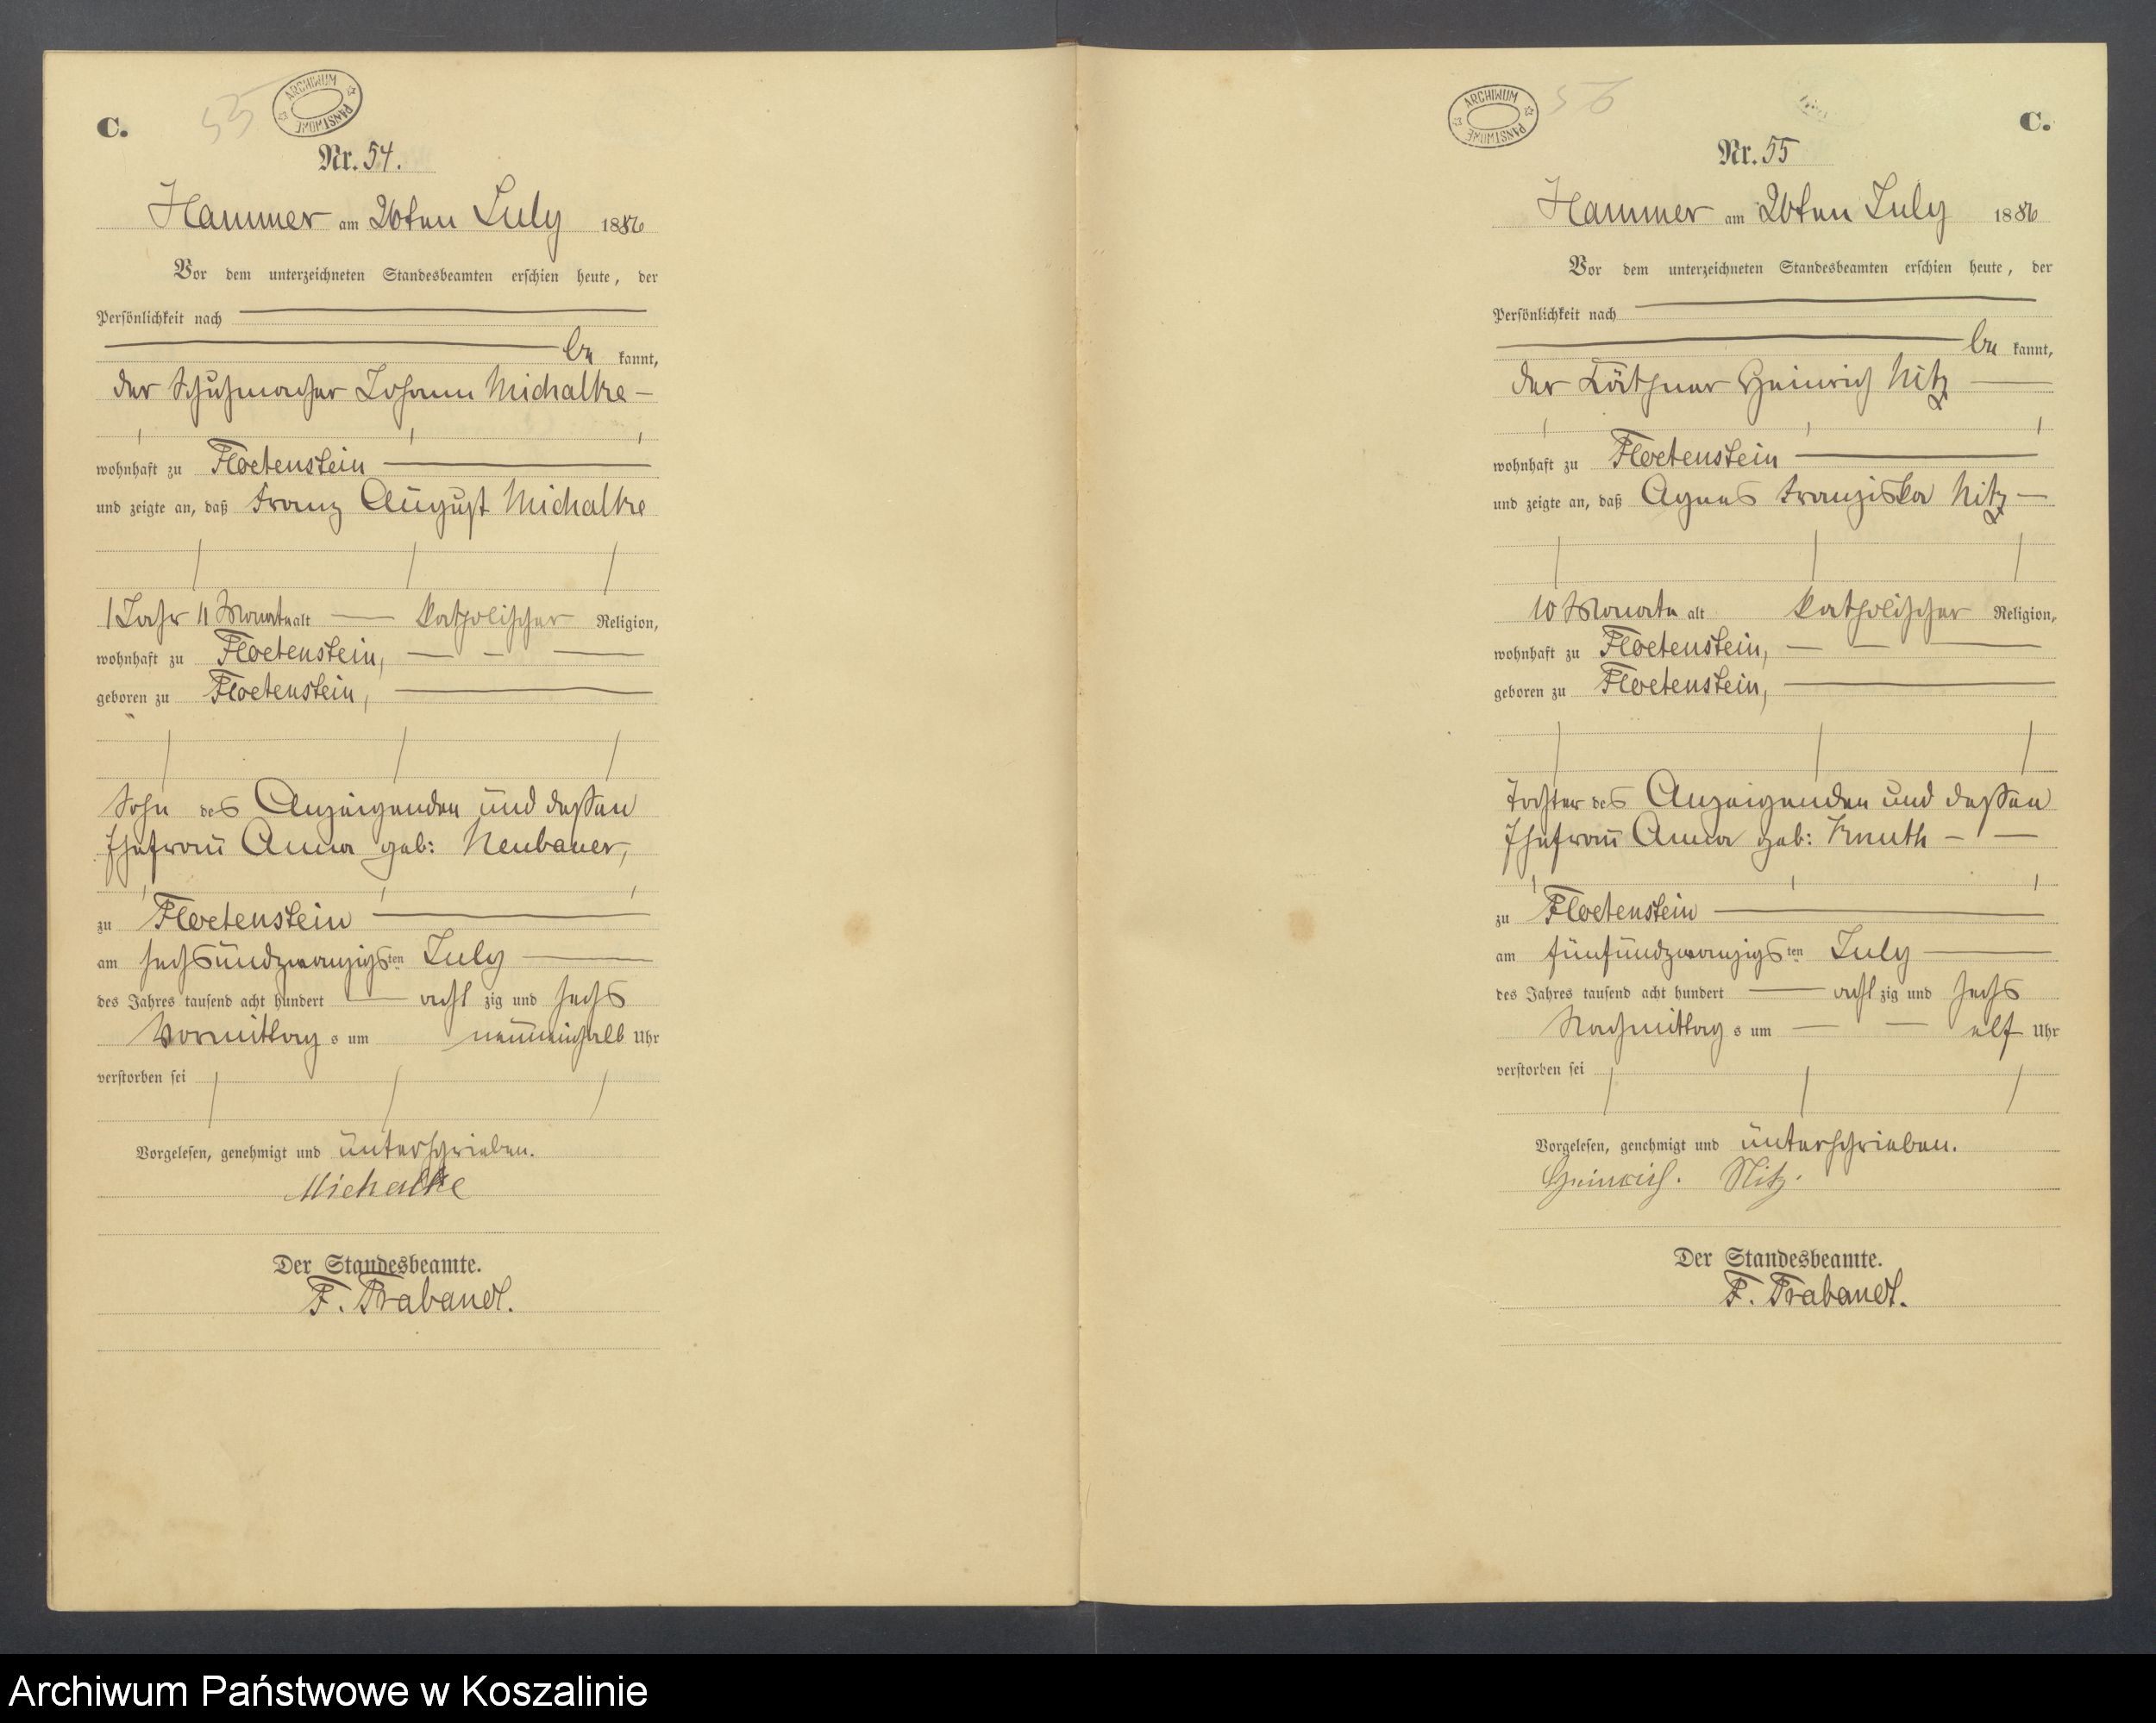 C.
55
ARCHIWUM PAŃSTWOWE
Nr. 54.
Hammer am 26ten July 1886
Vor dem unterzeichneten Standesbeamten erschien heute, der
Persönlichkeit nach
be kannt,
der Schuhmacher Johann Michalke
wohnhaft zu Floetenstein
und zeigte an, daß Franz August Michalke
1 Jahr 11 Monate alt katholischer Religion,
wohnhaft zu Floetenstein,
geboren zu Floetenstein,
Sohn des Anzeigenden und dessen
Ehefrau Anna geb: Neubauer,
zu Floetenstein
am sechsundzwanzigsten July
des Jahres tausend acht hundert acht zig und sechs
Vormittag s um neuneinhalb Uhr
verstorben sei
Vorgelesen, genehmigt und unterschrieben.
Michalke
Der Standesbeamte.
F. Trabandt.
ARCHIWUM PAŃSTWOWE
56
C.
Nr. 55
Hammer am 26ten July 1886
Vor dem unterzeichneten Standesbeamten erschien heute, der
Persönlichkeit nach
be kannt,
der Käthner Heinrich Nitz
wohnhaft zu Floetenstein
und zeigte an, daß Agnes Franziska Nitz
10 Monate alt katholischer Religion,
wohnhaft zu Floetenstein,
geboren zu Floetenstein,
Tochter des Anzeigenden und dessen
Ehefrau Anna geb: Knuth
zu Floetenstein
am fünfundzwanzigsten July
des Jahres tausend acht hundert acht zig und sechs
Nachmittag s um elf Uhr
verstorben sei
Vorgelesen, genehmigt und unterschrieben.
Heinrich. Nitz.
Der Standesbeamte.
F. Trabandt.
Archiwum Państwowe w Koszalinie